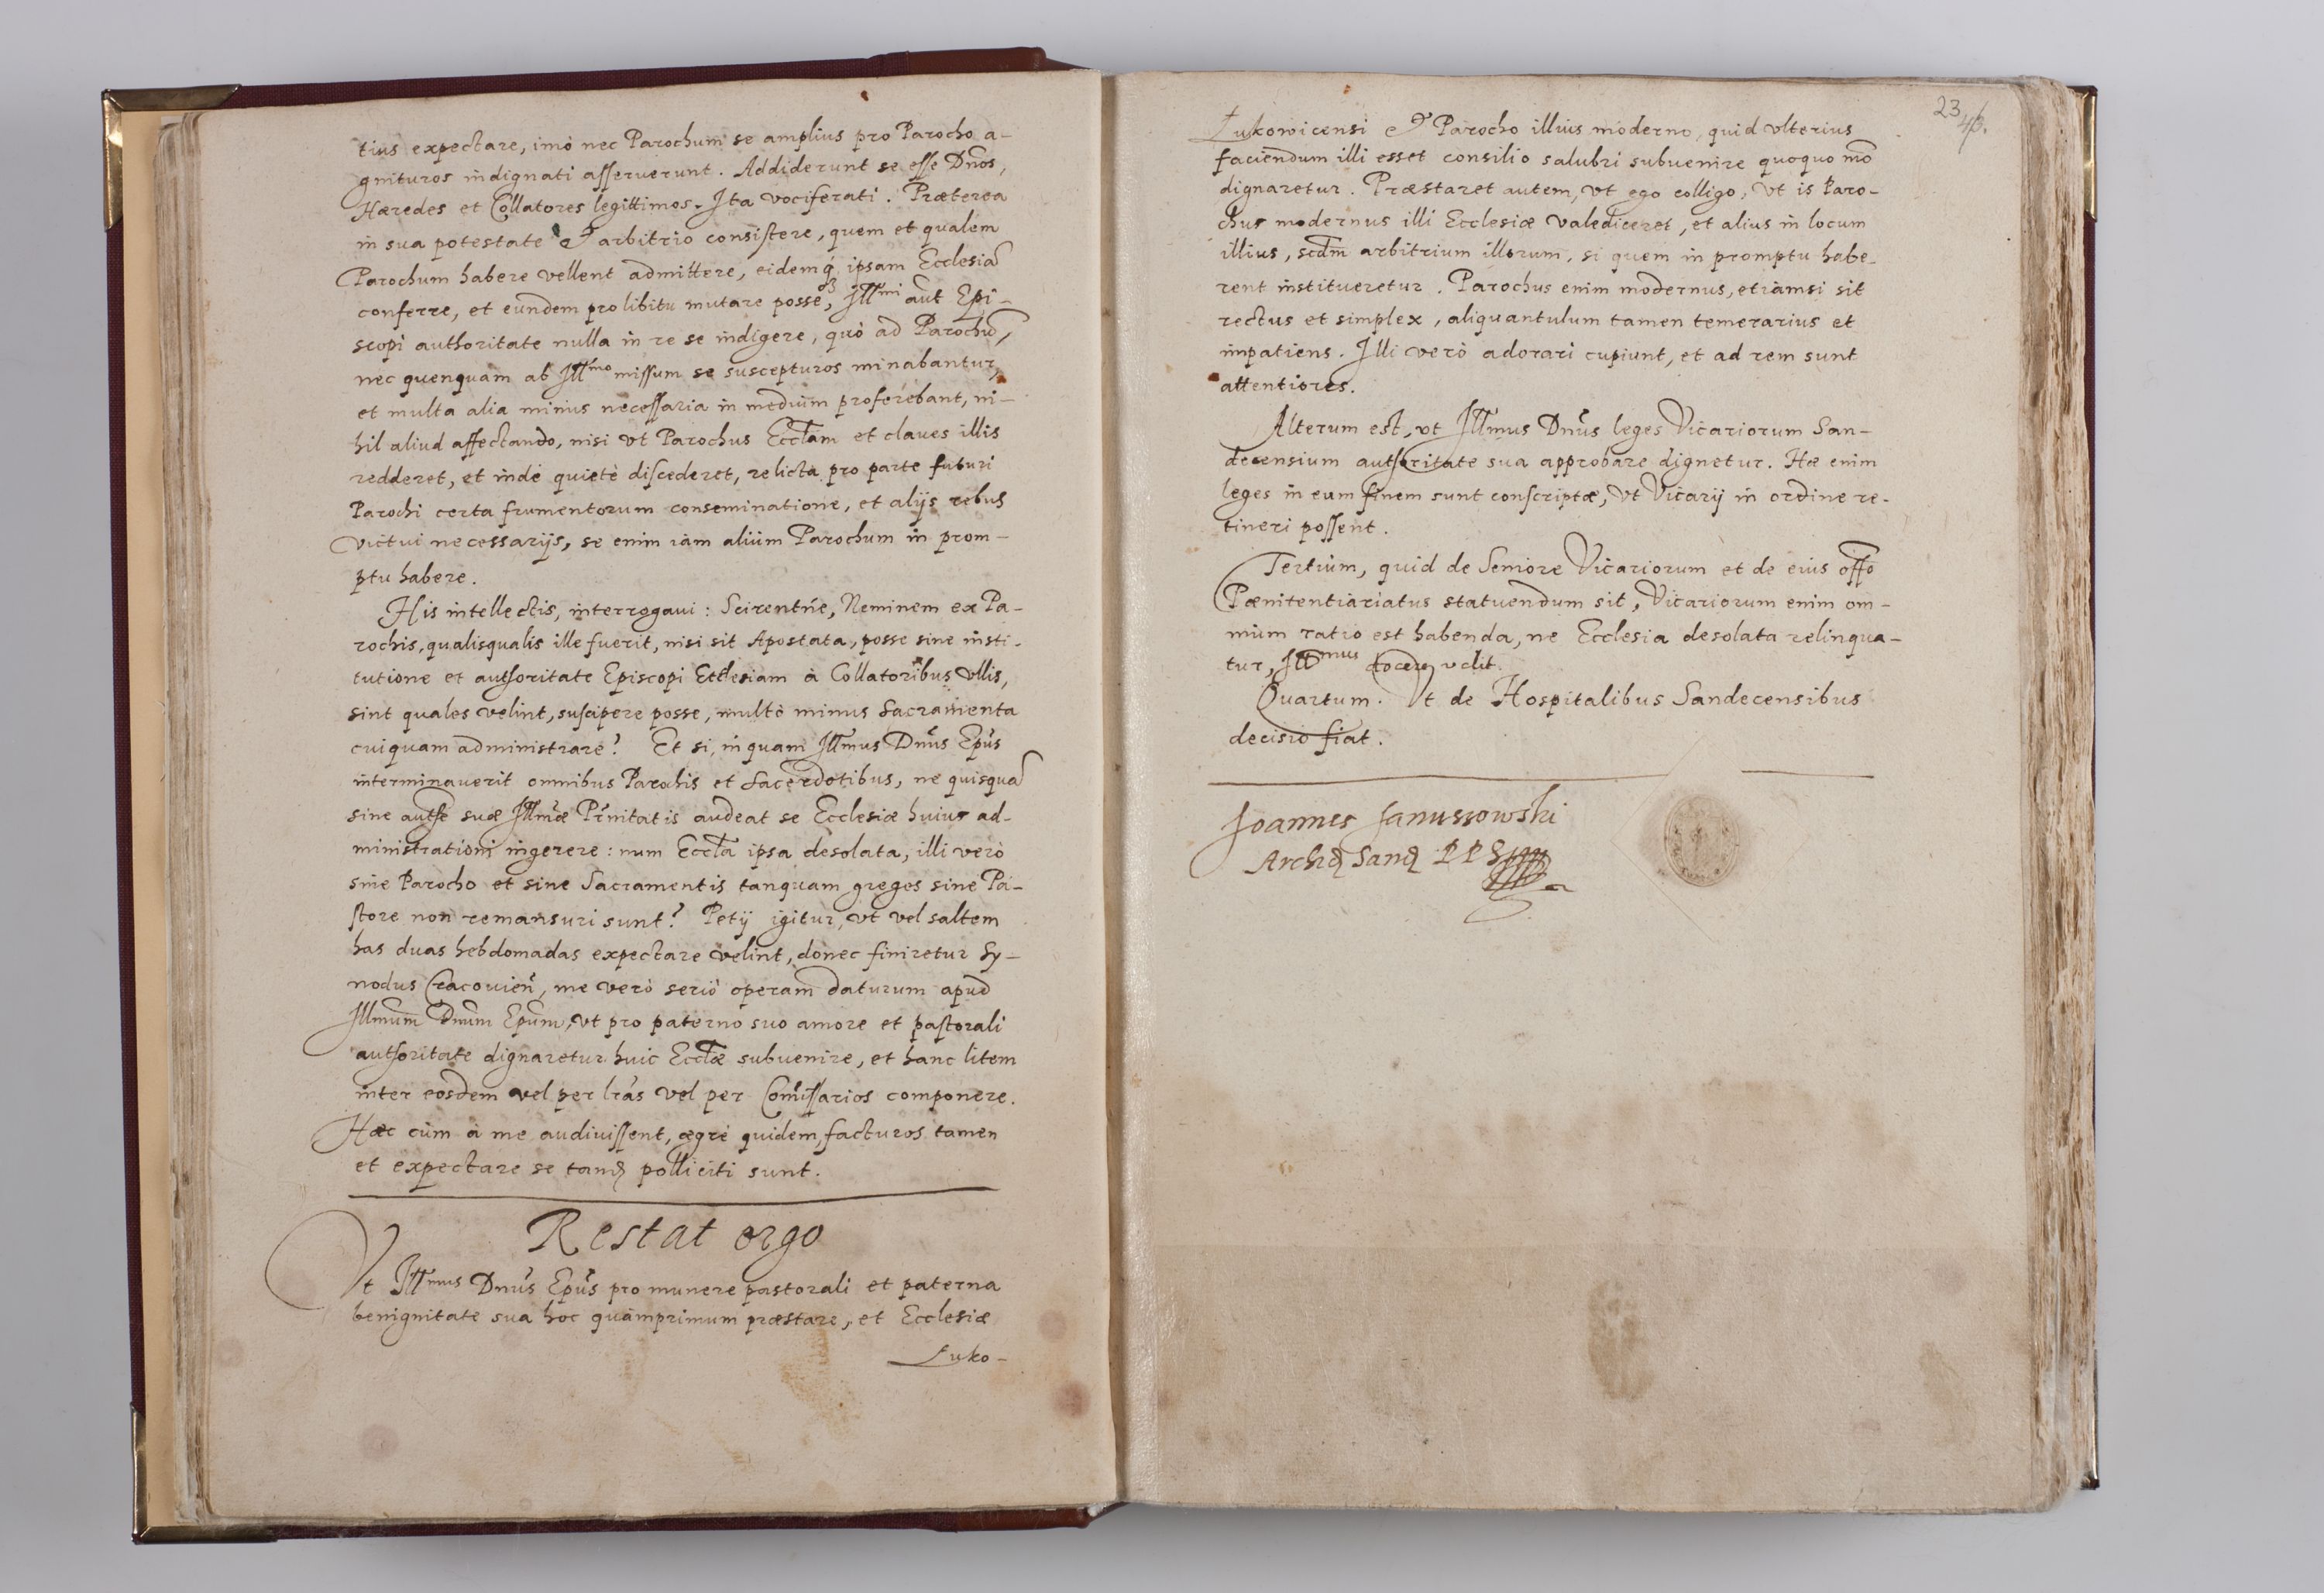 tius expectare, imò nec Parochum se amplius pro Parocho a-
gnituros indignati asseruerunt. Addiderunt se esse Dños,
Hæredes et Collatores legittimos. Ita vociferati. Præterea
in sua potestate & arbitrio consistere, quem et qualem
Parochum habere vellent admittere, eidemq́ ipsam Ecclesiã
conferre, et eundem pro libitu mutare posse, Illmi aut Epi-
scopi authoritate nulla in re se indigere, quò ad Parochũ,
nec quenquam ab Illmo missum se suscepturos minabantur,
et multa alia minus necessaria in medium proferebant, ni-
hil aliud affectando, nisi vt Parochus Eccłam et claues illis
redderet, et indè quietè discederet, relicta pro parte futuri
Parochi certa frumentorum conseminatione, et alijs rebus
victui necessarijs, se enim iàm aliùm Parochum in prom-
ptu habere.
His intellectis, interrogaui: Scirentńe, Neminem ex Pa-
rochis, qualisqualis ille fuerit, nisi sit Apostata, posse sine insti-
tutione et authoritate Episcopi Ecclesiam à Collatoribus vllis,
sint quales velint, suscipere posse, multò minus Sacramenta
cuiquam administrare? Et si, inquam Illmus Dnũs Epũs
interminauerit omnibus Parochis et Sacerdotibus, ne quisquã
sine authe suæ Illmæ Pr̃nitatis audeat se Ecclesiæ huius ad-
ministrationi ingerere: num Eccła ipsa desolata, illi verò
sine Parocho et sine Sacramentis tanquam greges sine Pa-
store non remansuri sunt? Petij igitur, vt vel saltem
has duas hebdomadas expectare velint, donec finiretur Sy-
nodus Cracouieñ, me verò seriò operam daturum apud
Illmum Dnum Epum, vt pro paterno suo amore et pastorali
authoritate dignaretur huic Eccłæ subuenire, et hanc litem
inter eosdem vel per lr̃as vel per Com̃issarios componere.
Hæc cùm à me audiuissent, ægrè quidem, facturos tamen
et expectare se tand polliciti sunt.
Restat ergo
Vt Illmus Dnũs Epũs pro munere pastorali et paterna
benignitate sua hoc quàmprimum præstare, et Ecclesiæ
Łuko-
23
Łukowicensi & Parocho illius moderno, quid vlterius
faciendum illi esset consilio salubri subuenire quoquo mõ
dignaretur. Præstaret autem, vt ego colligo, vt is Paro-
chus modernus illi Ecclesiæ valediceret, et alius in locum
illius, scdm arbitrium illorum, si quem in promptu habe-
rent institueretur. Parochus enim modernus, etiàmsi sit
rectus et simplex, aliquantulum tamen temerarius et
impatiens. Illi verò adorari cupiunt, et ad rem sunt
attentiores.
Alterum est, vt Illmus Dnũs leges Vicariorum San-
decensium authoritate sua approbare dignetur. Hæ enim
leges in eum finem sunt conscriptæ, vt Vicarij in ordine re-
tineri possent.
Tertium, quid de Seniore Vicariorum et de eius offo
Pænitentiariatus statuendum sit, Vicariorum enim om-
nium ratio est habenda, ne Ecclesia desolata relinqua-
tur, Illmus velit.
Quartum. Vt de Hospitalibus Sandecensibus
decisio fiat.
Joannes Janussowski
Archid Sand PPS